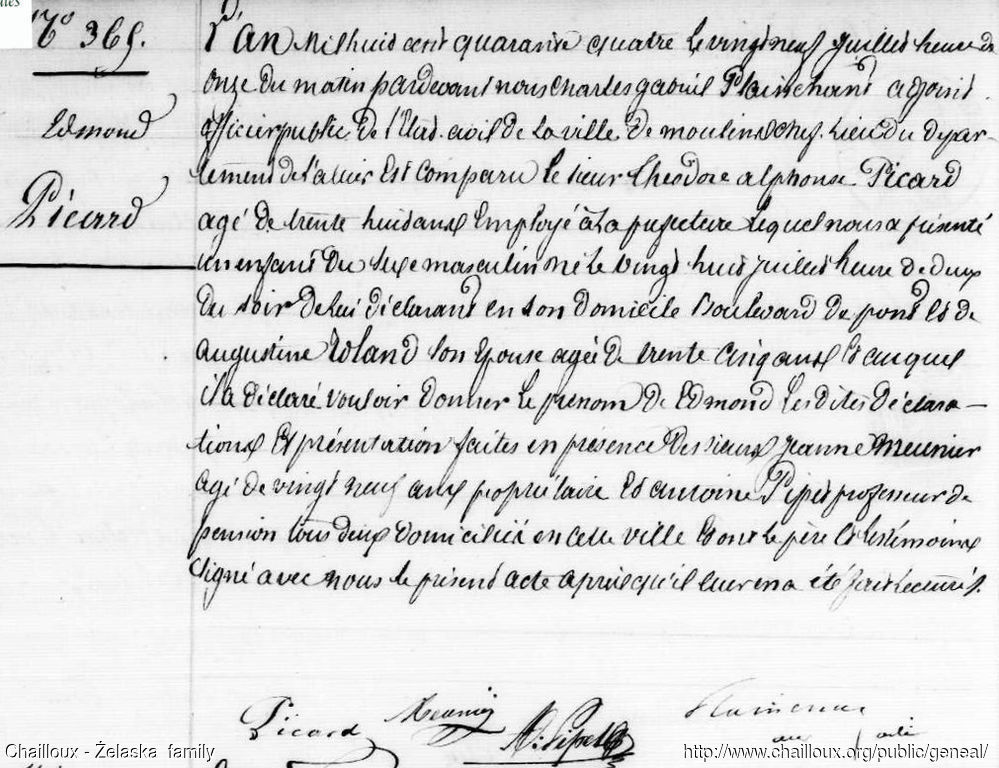 N° 369.
Edmond
Picard
L'an mil huit cent quarante quatre le vingt neuf juillet heure de
onze du matin pardevant nous Charles gabriel Plainchant adjoint
officier public de l'Etat civil de la ville de moulins chef-lieu du depar-
tement de l'allier Est Comparu le sieur théodore alphonse Picard
agé de trente huit ans Employé à la prefecture lequel nous a présenté
un enfant du sexe masculin né le vingt huit juillet heure de deux
du soir de lui déclarant en son domicile Boulevard de pont Et de
augustine Roland son Epouse agée de trente cinq ans Et auquel
il a déclaré vouloir donner le prenom de Edmond les dites déclara-
tions Et présentation faites en présence des sieurs jeanne meunier
agé de vingt neuf ans propriétaire Et antoine Pipet professeur de
pension tous deux domiciliés en cette ville Et ont le père Et les témoins
signé avec nous le présent acte après qu'il leur en a été fait lecture.
Picard Meunier A. Pipet
Chailloux - Żelaska family
http://www.chailloux.org/public/geneal/